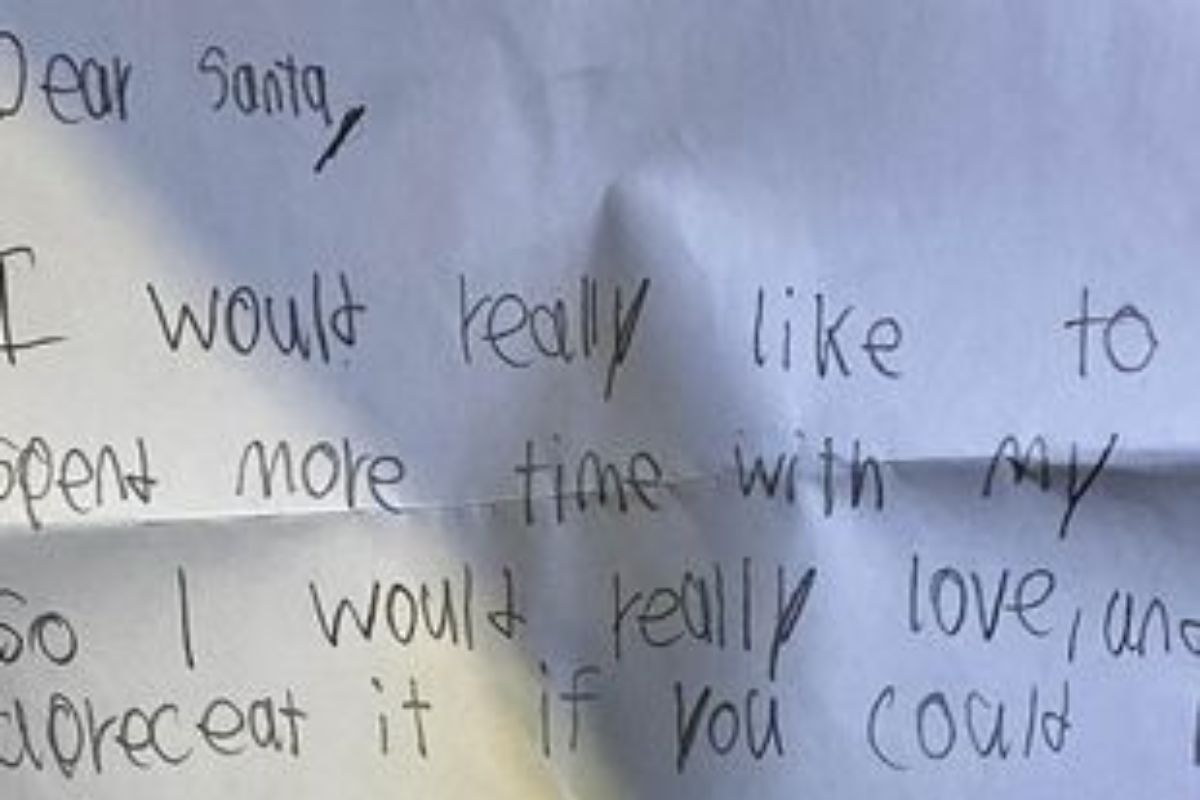 Dear Santa,
I would really like to
spend more time with my
So I would really love, and
apreceat it if you could